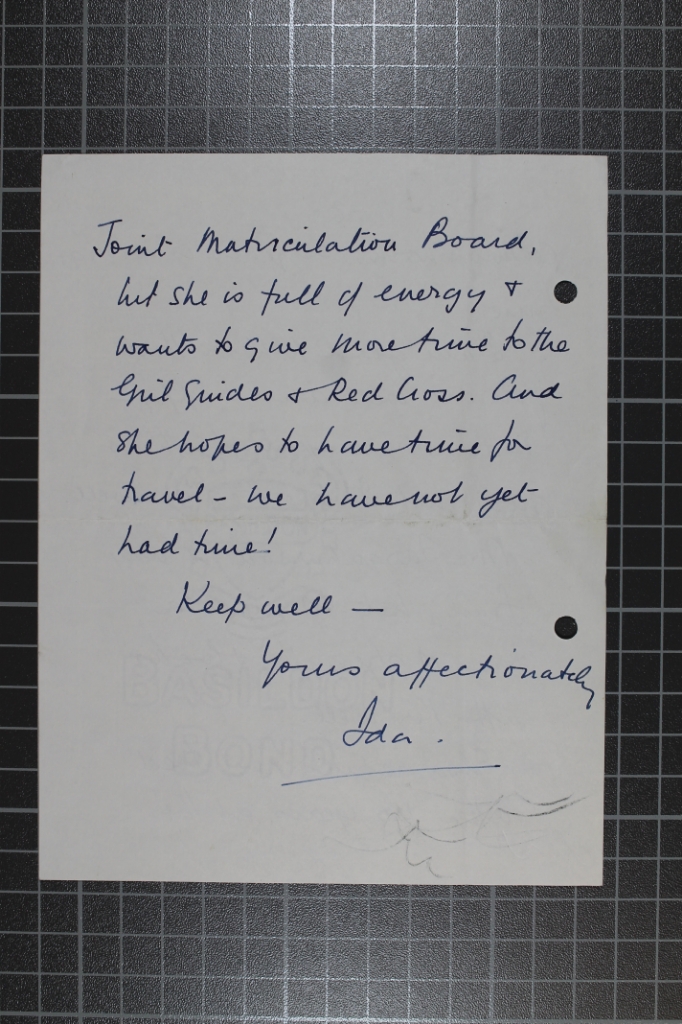 Joint Matriculation Board,
but she is full of energy &
wants to give more time to the
Girl Guides & Red Cross. And
she hopes to have time for
travel – we have not yet
had time!
Keep well —
Yours affectionately
Ida.